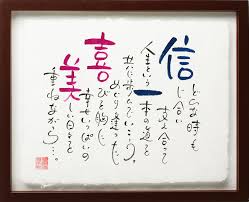 どんな時も
信じ合い
支え合って
人生という
一本の道を
共に歩んでいこう…。
めぐり逢った
喜びを胸に
幸せいっぱいの
美しい日々を
重ねながら…。